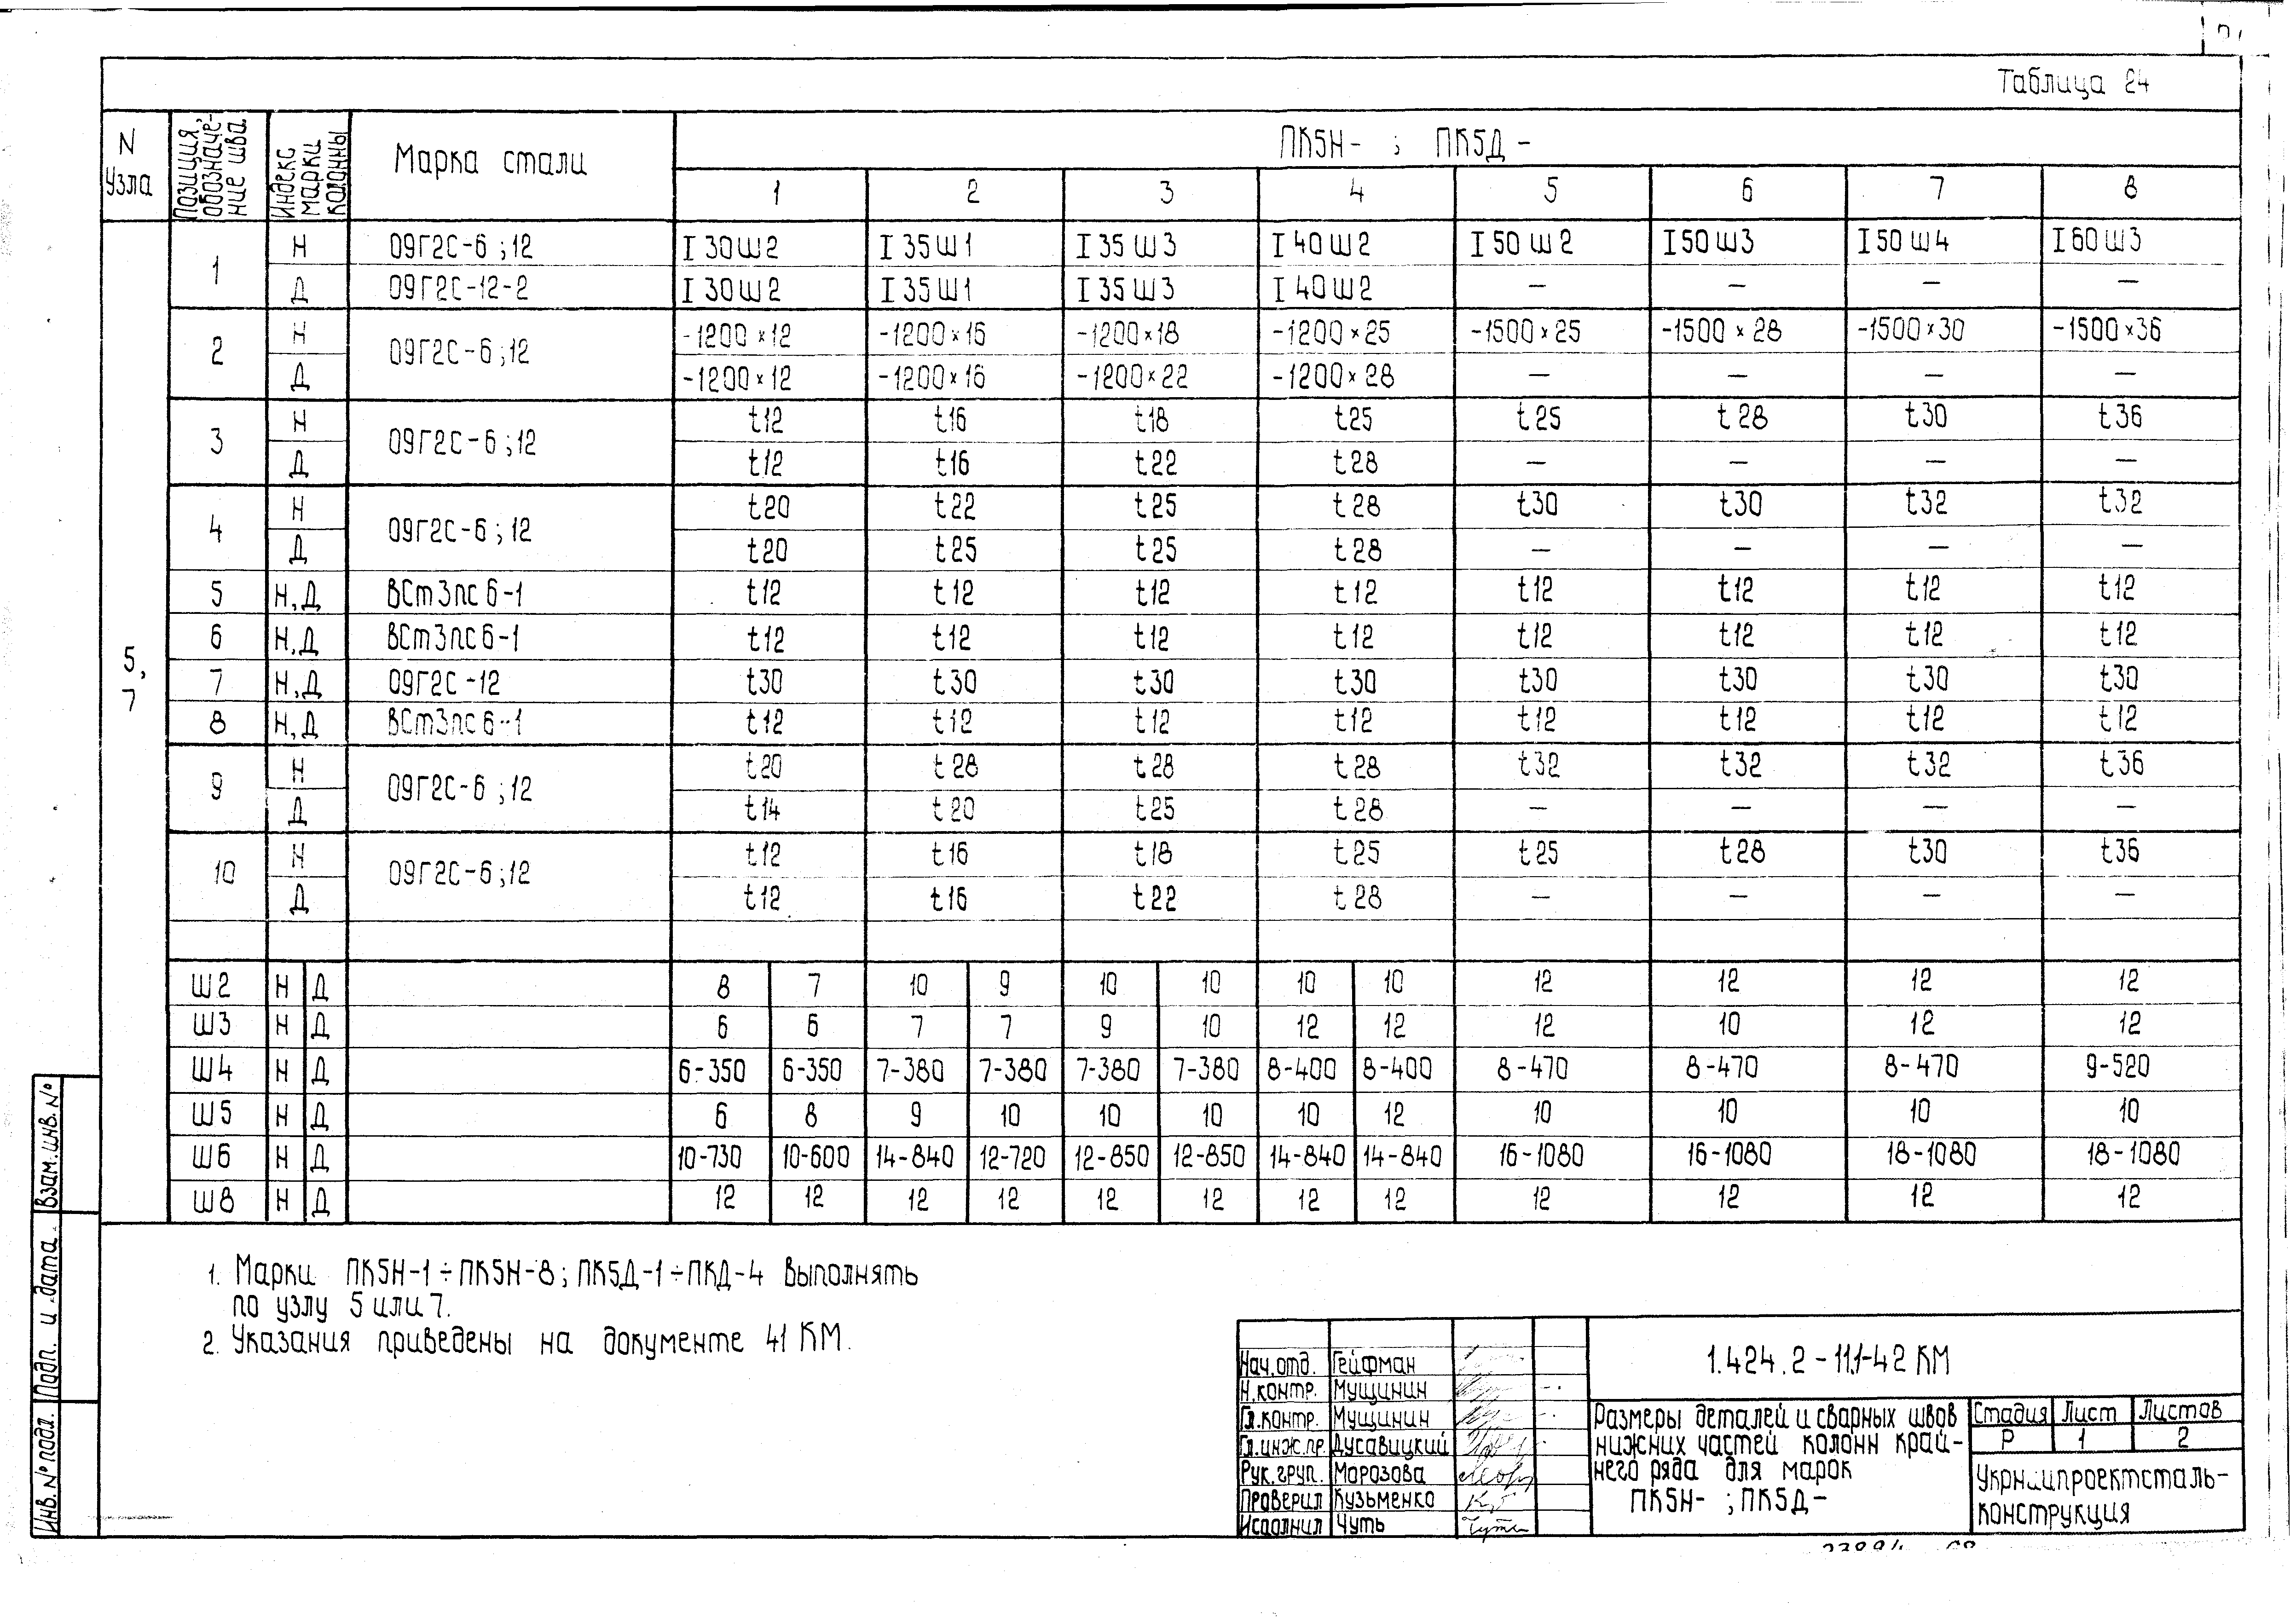 Таблица 24
N узла | Позиция, обозначение шва | Индекс марки колонны | Марка стали | ПК5Н- ; ПК5Д-
1 | 2 | 3 | 4 | 5 | 6 | 7 | 8
5, 7
1 | Н | 09Г2С-6;12 | I 30Ш2 | I 35Ш1 | I 35Ш3 | I 40Ш2 | I 50Ш2 | I 50Ш3 | I 50Ш4 | I 60Ш3
Д | 09Г2С-12-2 | I 30Ш2 | I 35Ш1 | I 35Ш3 | I 40Ш2 | — | — | — | —
2 | Н | 09Г2С-6;12 | -1200×12 | -1200×16 | -1200×18 | -1200×25 | -1500×25 | -1500×28 | -1500×30 | -1500×36
Д | -1200×12 | -1200×16 | -1200×22 | -1200×28 | — | — | — | —
3 | Н | 09Г2С-6;12 | t12 | t16 | t18 | t25 | t25 | t28 | t30 | t36
Д | t12 | t16 | t22 | t28 | — | — | — | —
4 | Н | 09Г2С-6;12 | t20 | t22 | t25 | t28 | t30 | t30 | t32 | t32
Д | t20 | t25 | t25 | t28 | — | — | — | —
5 | Н,Д | ВСт3пс6-1 | t12 | t12 | t12 | t12 | t12 | t12 | t12 | t12
6 | Н,Д | ВСт3пс6-1 | t12 | t12 | t12 | t12 | t12 | t12 | t12 | t12
7 | Н,Д | 09Г2С-12 | t30 | t30 | t30 | t30 | t30 | t30 | t30 | t30
8 | Н,Д | ВСт3пс6-1 | t12 | t12 | t12 | t12 | t12 | t12 | t12 | t12
9 | Н | 09Г2С-6;12 | t20 | t28 | t28 | t28 | t32 | t32 | t32 | t36
Д | t14 | t20 | t25 | t28 | — | — | — | —
10 | Н | 09Г2С-6;12 | t12 | t16 | t18 | t25 | t25 | t28 | t30 | t36
Д | t12 | t16 | t22 | t28 | — | — | — | —
Ш2 | Н | Д | 8 | 7 | 10 | 9 | 10 | 10 | 10 | 10 | 12 | 12 | 12 | 12
Ш3 | Н | Д | 6 | 6 | 7 | 7 | 9 | 10 | 12 | 12 | 12 | 10 | 12 | 12
Ш4 | Н | Д | 6-350 | 6-350 | 7-380 | 7-380 | 7-380 | 7-380 | 8-400 | 8-400 | 8-470 | 8-470 | 8-470 | 9-520
Ш5 | Н | Д | 6 | 8 | 9 | 10 | 10 | 10 | 10 | 12 | 10 | 10 | 10 | 10
Ш6 | Н | Д | 10-730 | 10-600 | 14-840 | 12-720 | 12-850 | 12-850 | 14-840 | 14-840 | 16-1080 | 16-1080 | 18-1080 | 18-1080
Ш8 | Н | Д | 12 | 12 | 12 | 12 | 12 | 12 | 12 | 12 | 12 | 12 | 12 | 12
1. Марки ПК5Н-1÷ПК5Н-8; ПК5Д-1÷ПКД-4 выполнять
по узлу 5 или 7.
2. Указания приведены на документе 41 КМ.
Взам.инв.N°
Подп. и дата
Инв.N°подл.
Нач.отд. Гейфман
Н.контр. Мущинин
Гл.контр. Мущинин
Гл.инж.пр. Дусавицкий
Рук.груп. Морозова
Проверил Кузьменко
Исполнил Чуть
1.424.2-11.1-42 КМ
Размеры деталей и сварных швов
нижних частей колонн край-
него ряда для марок
ПК5Н- ; ПК5Д-
Стадия | Лист | Листов
Р | 1 | 2
Укрниипроектсталь-
конструкция